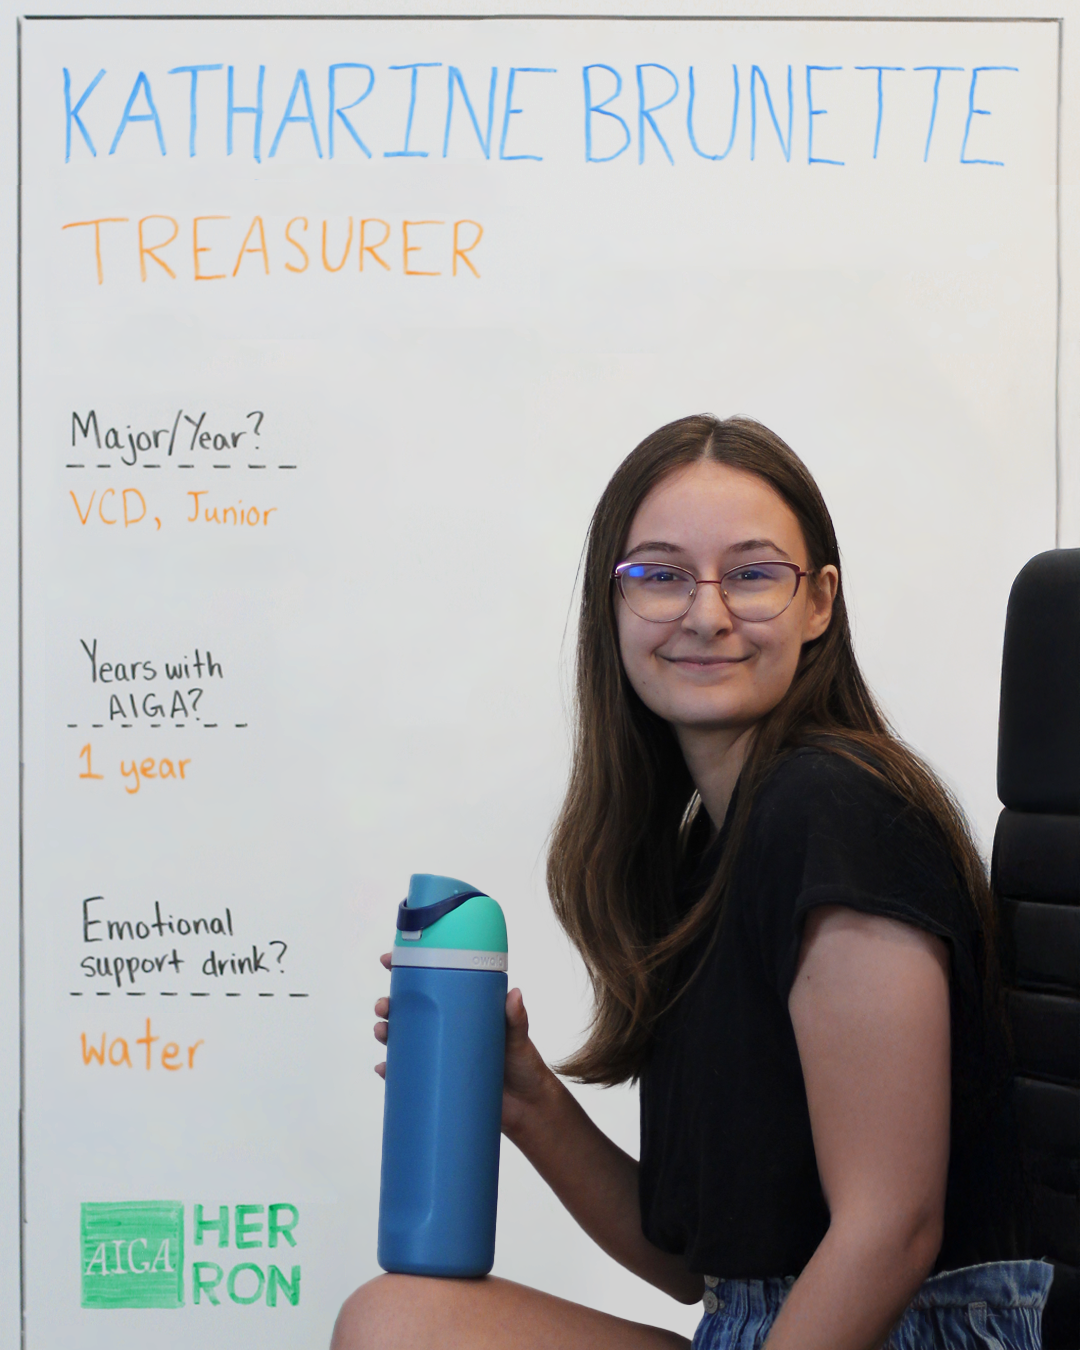 KATHARINE BRUNETTE
TREASURER
Major/Year?
VCD, Junior
Years with
AIGA?
1 year
Emotional
support drink?
water
owala
AIGA
HER
RON